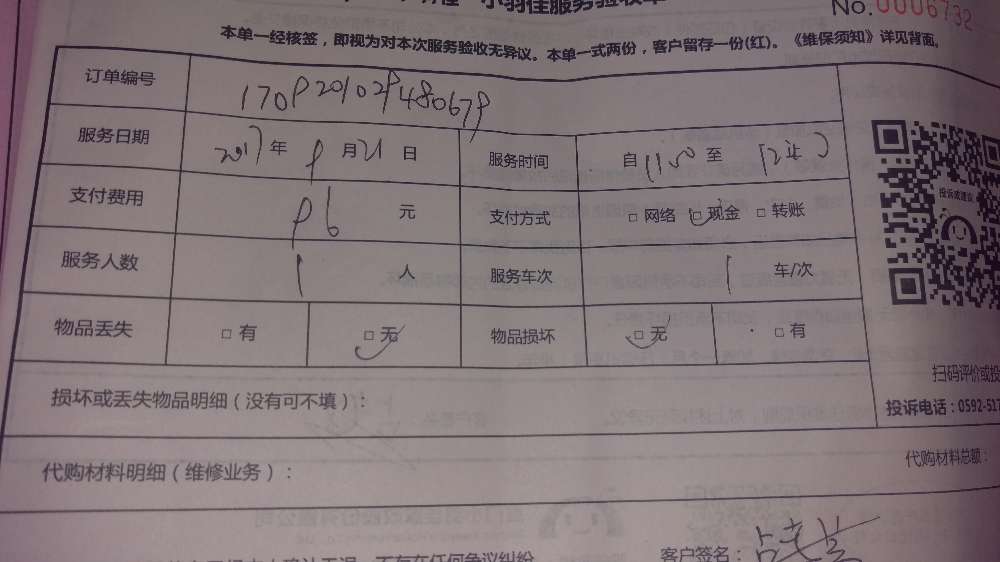 小羽佳服务验收单
No.0006732
本单一经核签，即视为对本次服务验收无异议。本单一式两份，客户留存一份(红)。《维保须知》详见背面。
订单编号 1709201029480679
服务日期 2017年 9 月21日 服务时间 自1150至
支付费用 96 元 支付方式 □网络 □现金 □转账
服务人数 1 人 服务车次 1 车/次
物品丢失 □有 □无 物品损坏 □无 □有
投诉或建议
扫码评价或投
损坏或丢失物品明细（没有可不填）：
投诉电话：0592-517
代购材料明细（维修业务）：
代购材料总额：
不存在任何争议纠纷
客户签名：